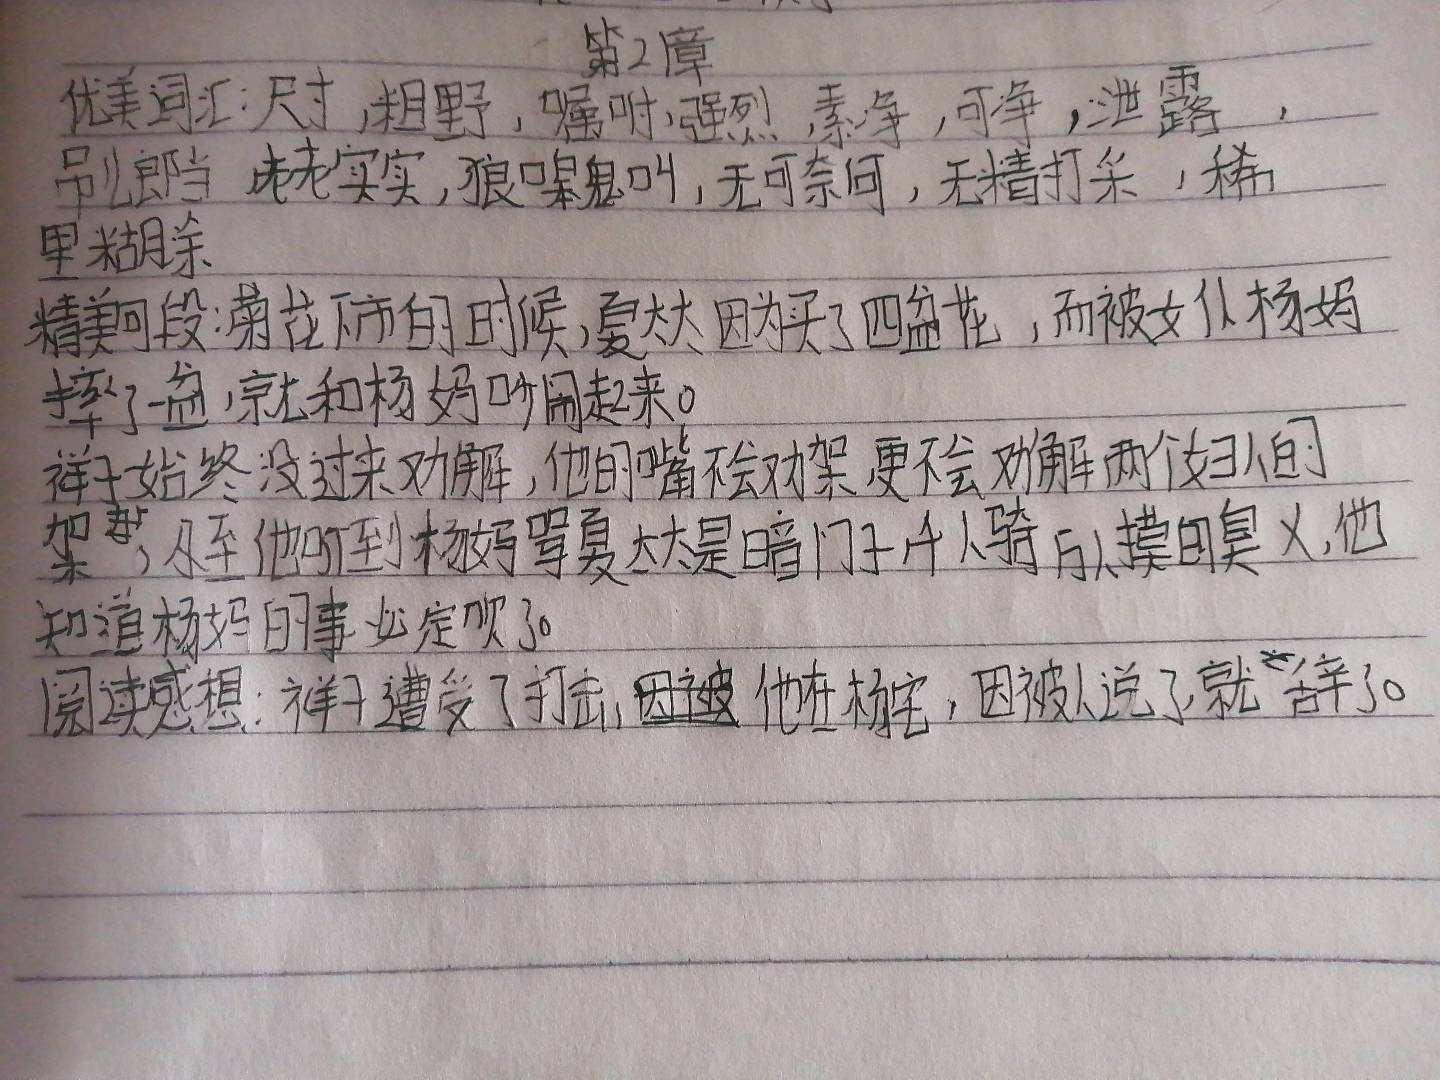 第2章
优美词汇:尺寸,粗野,嘱咐,强烈,素净,可净,泄露,
吊儿郎当 老老实实,狼嗥鬼叫,无可奈何,无精打采,稀
里糊涂
精美句段:菊花下市的时候,夏太太因为买了四盆花,而被女仆杨妈
摔了一盆,就和杨妈吵闹起来。
祥子始终没过来劝解,他的嘴不会劝架,更不会劝解两个妇人的
架,及至他听到杨妈骂夏太太是暗门子千人骑万人摸的臭×,他
知道杨妈的事必定吹了。
阅读感想:祥子遭受了打击,他在杨宅,因被人说了,就辞了。